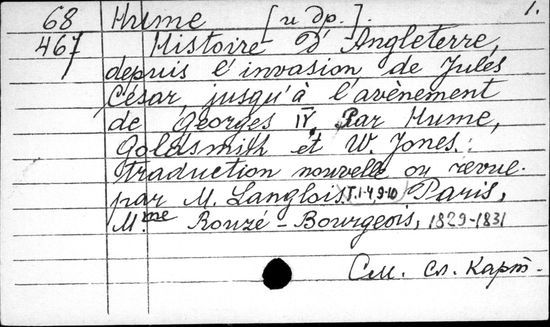 68 Hume [и др.]. 1.
467 Histoire d'Angleterre,
depuis l'invasion de Jules
César, jusqu'à l'avènement
de Georges IV, Par Hume,
Goldsmith et W. Jones.
Traduction nouvelle ou revue.
par M. Langlois. (T. 1-4, 9-10) Paris,
M.me Rouzé-Bourgeois, 1829-1831
См. сл. карт.